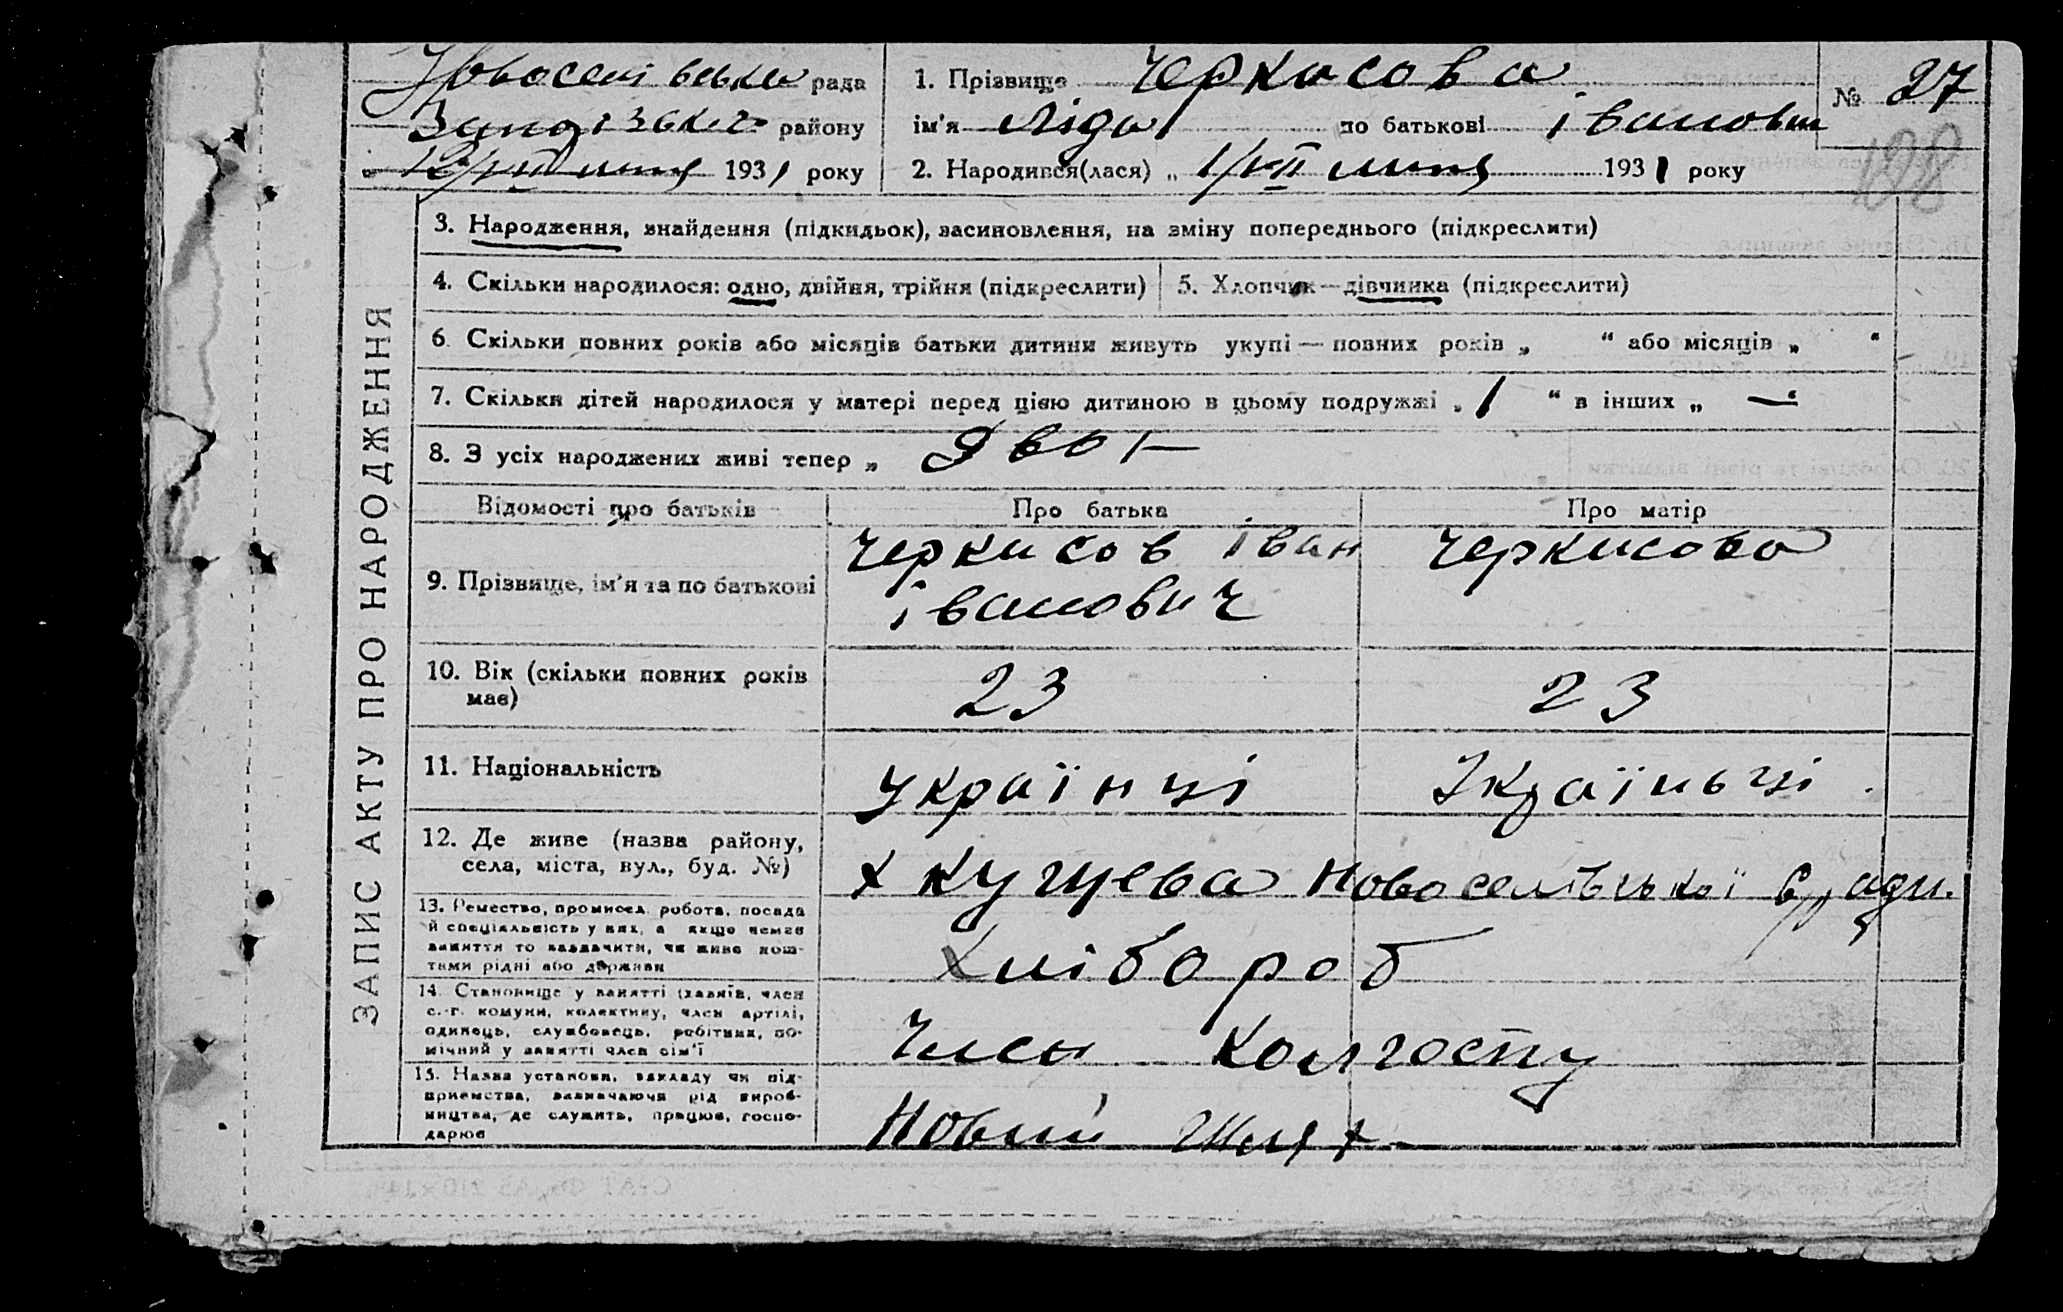 Новоселівська рада
району
12/VII липня 1931 року
1. Прізвище Черкасова
ім'я Ліда по батькові Івановна
2. Народився(лася) „ 1/VII липня 1931 року
№ 27
198
ЗАПИС АКТУ ПРО НАРОДЖЕННЯ
3. Народження, знайдення (підкидьок), засиновлення, на зміну попереднього (підкреслити)
4. Скільки народилося: одно, двійня, трійня (підкреслити) 5. Хлопчик — дівчинка (підкреслити)
6. Скільки повних років або місяців батьки дитини живуть укупі — повних років „ “ або місяців „ “
7. Скільки дітей народилося у матері перед цією дитиною в цьому подружжі „ 1 “ в інших „ — “
8. З усіх народжених живі тепер „ двоє —
Відомості про батьків Про батька Про матір
9. Прізвище, ім'я та по батькові Черкасов Іван Черкасова
Іванович
10. Вік (скільки повних років 23 23
має)
11. Національність Українці Україньці
12. Де живе (назва району, х Кущева Новоселівської с/ради.
села, міста, вул., буд. №)
13. Ремество, промисел, робота, посада
й спеціяльність у них, а якщо немає Хлібороб
заняття то зазначити, чи живе кош-
тами рідні або держави
14. Становище у занятті (хазяїн, член
с.-г. комуни, колективу, член артілі, Члени Колгоспу
одинець, службовець, робітник, по-
мічний у занятті член сім'ї
15. Назва установи, закладу чи під-
приємства, зазначаючи рід вироб- Новий Шлях
ництва, де служить, працює, госпо-
дарює